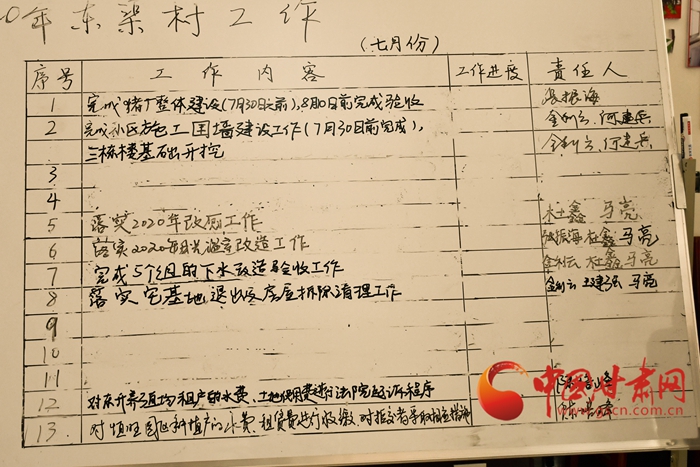 0年东梁村工作
(七月份)
序号 工作内容 工作进度 责任人
1 完成猪厂整体建设(7月30日之前),8月10日前完成验收 张振海
2 完成小区施工围墙建设工作(7月30日前完成), 金利云、何建兵
三栋楼基础开挖 金利云、何建兵
3
4
5 落实2020年改厕工作 杜鑫 马亮
6 落实2020年日光温室改造工作 张振海 杜鑫 马亮
7 完成5个组的下水改造及验收工作 金利云 杜鑫 马亮
8 落实宅基地退出区房屋拆除清理工作 金利云 马亮
9
10
11
12 水费、土地使用费进行法院起诉程序
13. 水费、租赁费进行收缴,对拒交者
中国甘肃网
gscn.com.cn